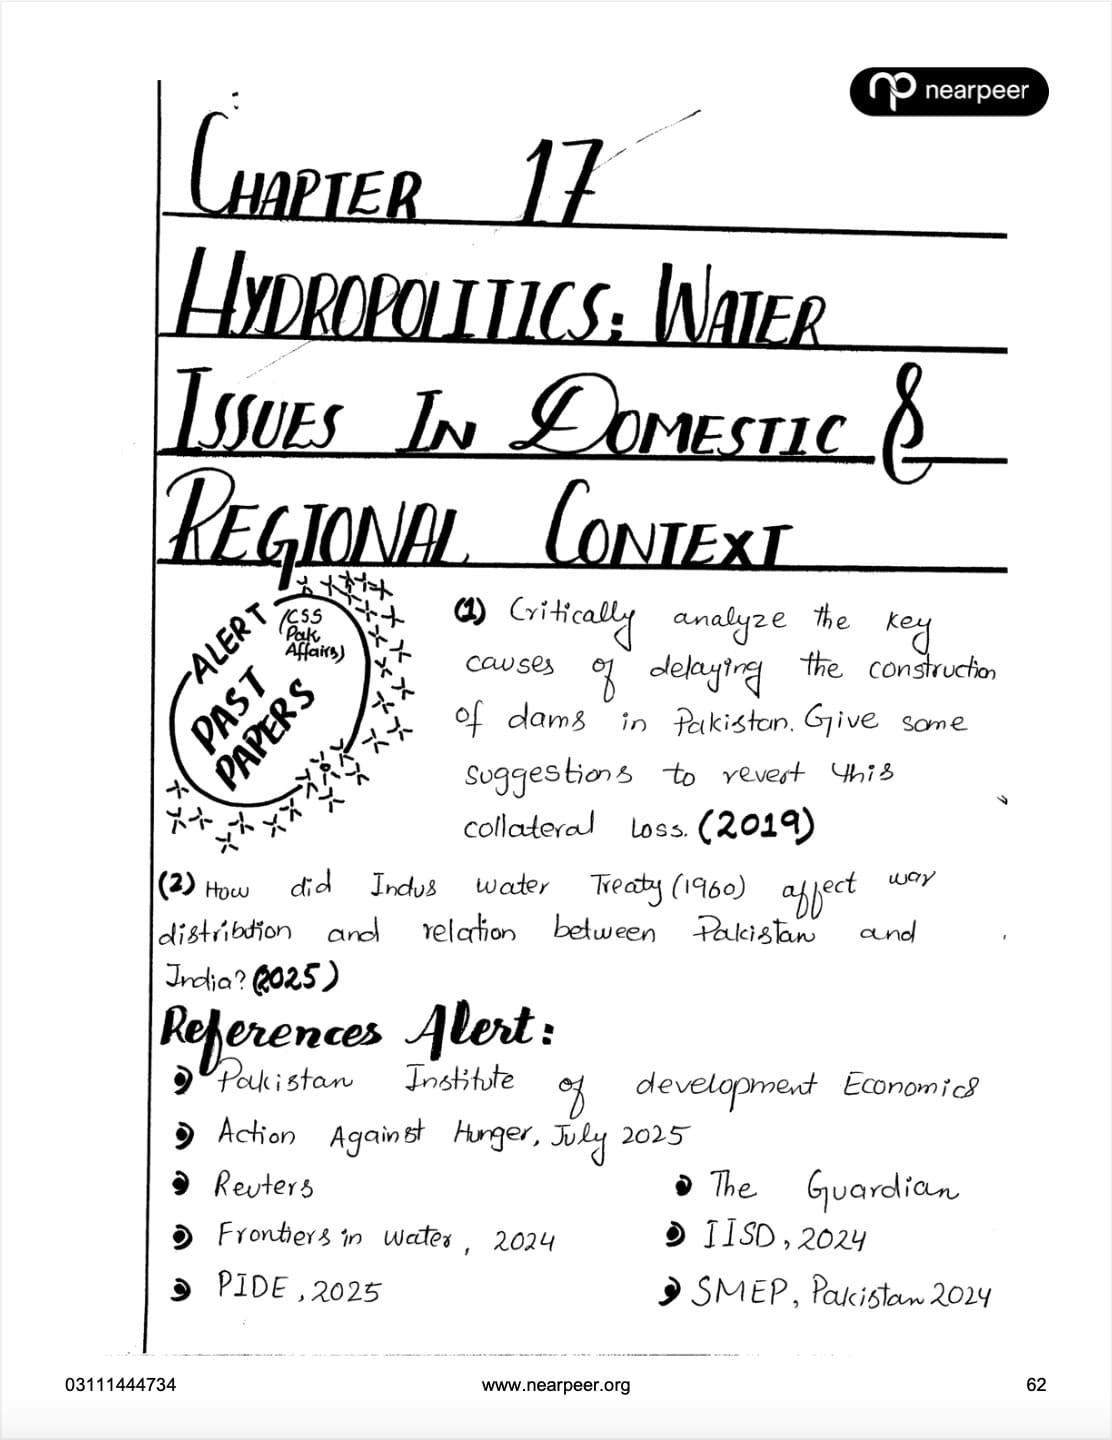 nearpeer
CHAPTER 17
HYDROPOLITICS: WATER
ISSUES IN DOMESTIC &
REGIONAL CONTEXT
ALERT
(CSS
Pak
Affairs)
PAST
PAPERS
(1) Critically analyze the key
causes of delaying the construction
of dams in Pakistan. Give some
suggestions to revert this
collateral loss. (2019)
(2) How did Indus water Treaty (1960) affect way
distribution and relation between Pakistan and
India? (2025)
References Alert:
Pakistan Institute of development Economics
Action Against Hunger, July 2025
Reuters
The Guardian
Frontiers in water, 2024
IISD, 2024
PIDE, 2025
SMEP, Pakistan 2024
03111444734 www.nearpeer.org 62